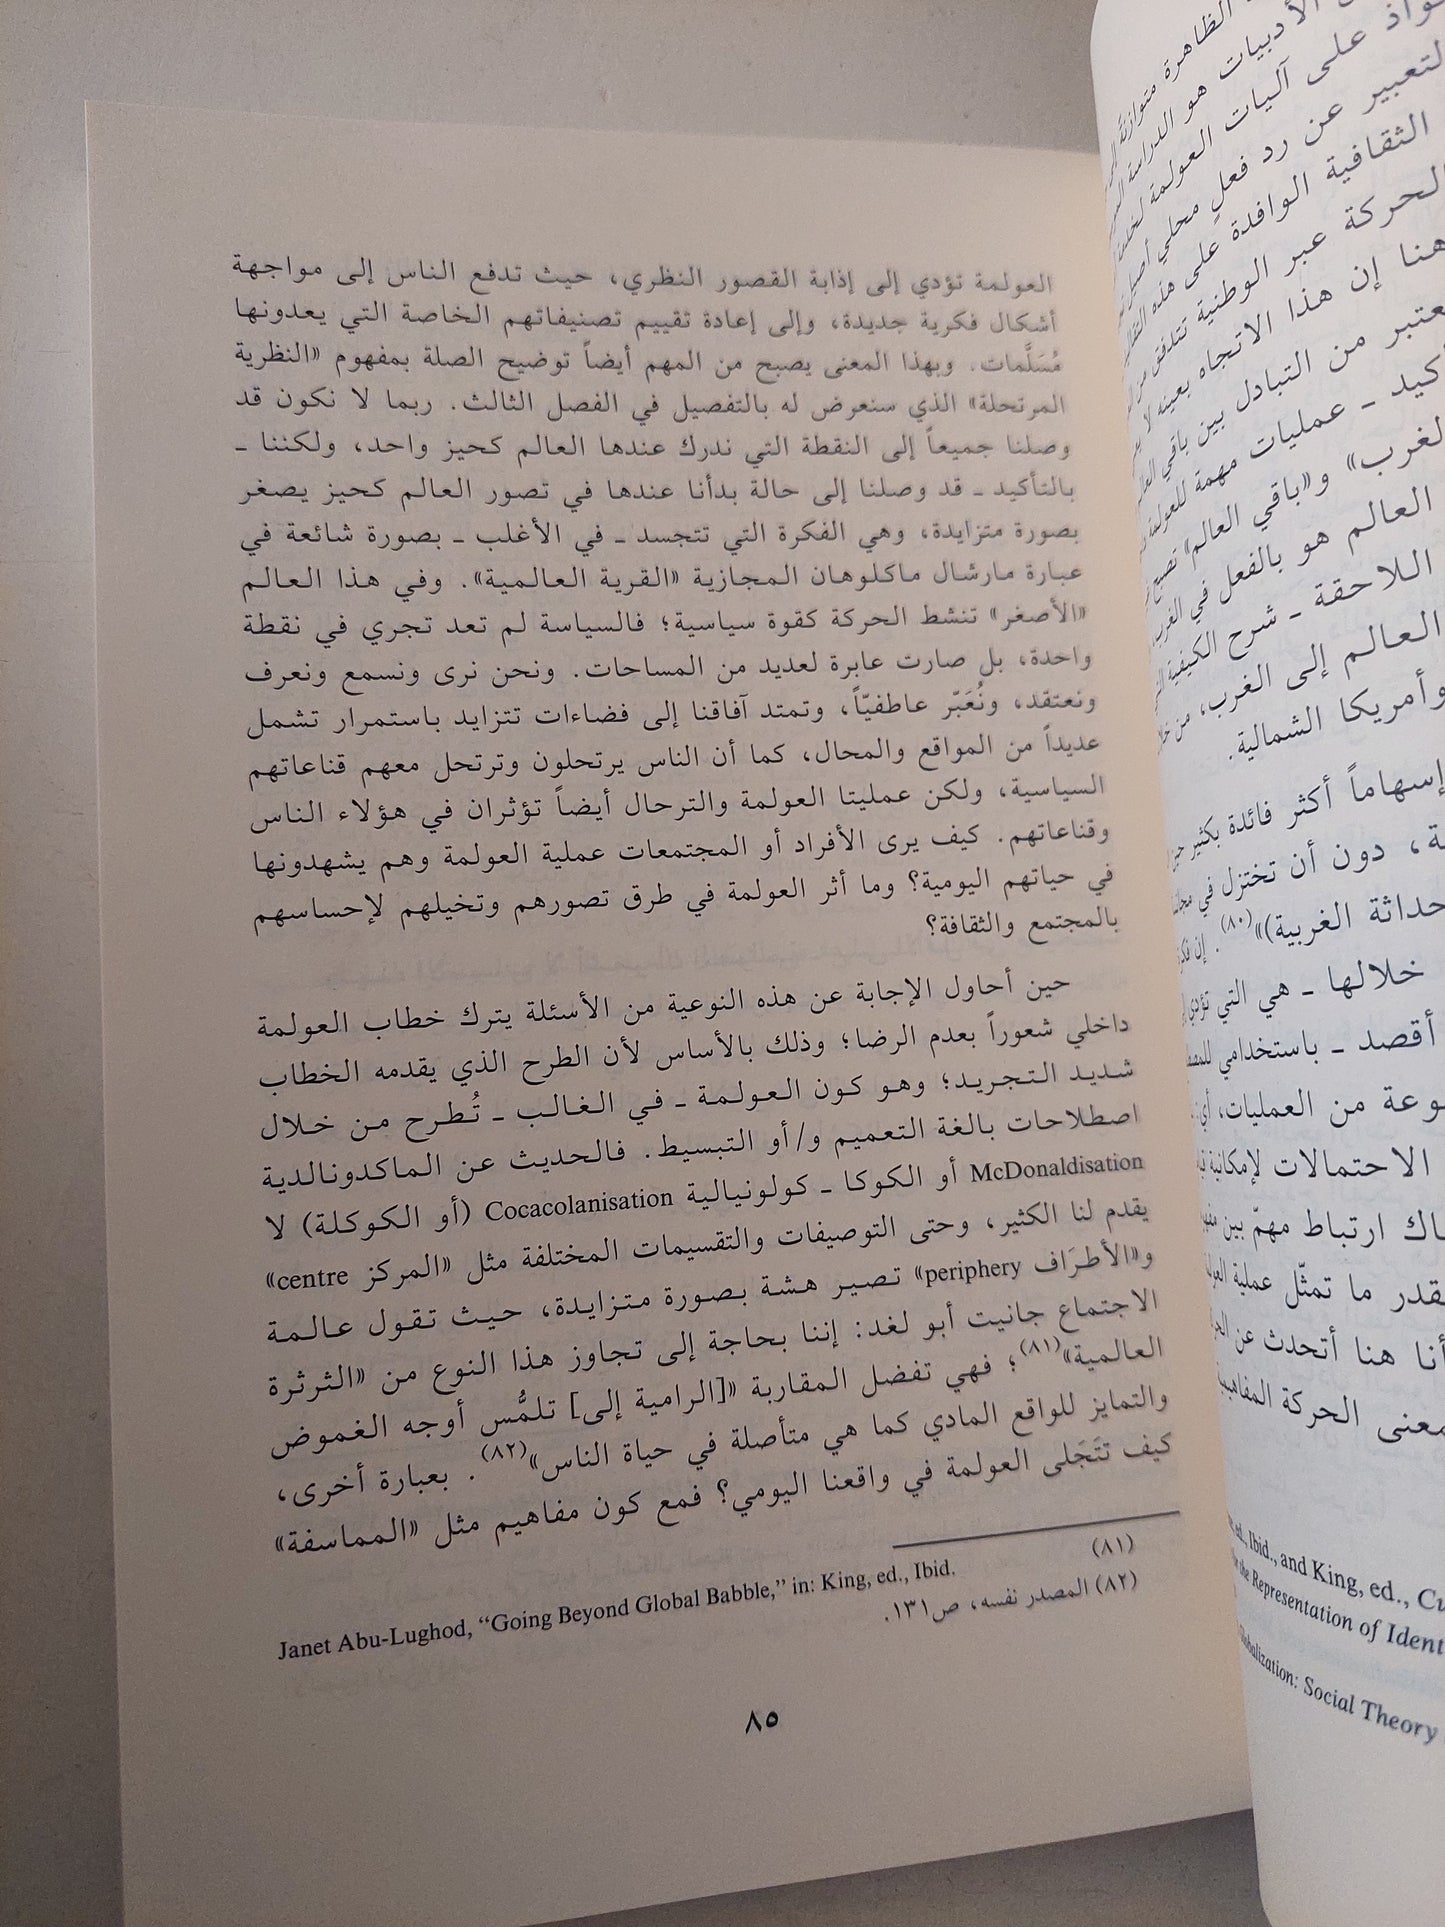 العولمة تؤدي إلى إذابة القصور النظري، حيث تدفع الناس إلى مواجهة
أشكال فكرية جديدة، وإلى إعادة تقييم تصنيفاتهم الخاصة التي يعدونها
مُسَلَّمات. وبهذا المعنى يصبح من المهم أيضاً توضيح الصلة بمفهوم «النظرية
المرتحلة» الذي سنعرض له بالتفصيل في الفصل الثالث. ربما لا نكون قد
وصلنا جميعاً إلى النقطة التي ندرك عندها العالم كحيز واحد، ولكننا ـ
بالتأكيد ـ قد وصلنا إلى حالة بدأنا عندها في تصور العالم كحيز يصغر
بصورة متزايدة، وهي الفكرة التي تتجسد ـ في الأغلب ـ بصورة شائعة في
عبارة مارشال ماكلوهان المجازية «القرية العالمية». وفي هذا العالم
«الأصغر» تنشط الحركة كقوة سياسية؛ فالسياسة لم تعد تجري في نقطة
واحدة، بل صارت عابرة لعديد من المساحات. ونحن نرى ونسمع ونعرف
ونعتقد، ونُعَبّر عاطفيّاً، وتمتد آفاقنا إلى فضاءات تتزايد باستمرار تشمل
عديداً من المواقع والمحال، كما أن الناس يرتحلون وترتحل معهم قناعاتهم
السياسية، ولكن عمليتا العولمة والترحال أيضاً تؤثران في هؤلاء الناس
وقناعاتهم. كيف يرى الأفراد أو المجتمعات عملية العولمة وهم يشهدونها
في حياتهم اليومية؟ وما أثر العولمة في طرق تصورهم وتخيلهم لإحساسهم
بالمجتمع والثقافة؟
حين أحاول الإجابة عن هذه النوعية من الأسئلة يترك خطاب العولمة
داخلي شعوراً بعدم الرضا؛ وذلك بالأساس لأن الطرح الذي يقدمه الخطاب
شديد التجريد؛ وهو كون العولمة ـ في الغالب ـ تُطرح من خلال
اصطلاحات بالغة التعميم و/أو التبسيط. فالحديث عن الماكدونالدية
McDonaldisation أو الكوكا ـ كولونيالية Cocacolanisation (أو الكوكلة) لا
يقدم لنا الكثير، وحتى التوصيفات والتقسيمات المختلفة مثل «المركز centre»
و«الأطرَاف periphery» تصير هشة بصورة متزايدة، حيث تقول عالمة
الاجتماع جانيت أبو لغد: إننا بحاجة إلى تجاوز هذا النوع من «الثرثرة
العالمية»(٨١)؛ فهي تفضل المقاربة «[الرامية إلى] تلمُّس أوجه الغموض
والتمايز للواقع المادي كما هي متأصلة في حياة الناس»(٨٢). بعبارة أخرى،
كيف تتَجَلى العولمة في واقعنا اليومي؟ فمع كون مفاهيم مثل «المماسفة»
(٨١)
Janet Abu-Lughod, “Going Beyond Global Babble,” in: King, ed., Ibid.
(٨٢) المصدر نفسه، ص١٣١.
٨٥
الظاهرة متوازنة
الأدبيات هو الدراسة
على آليات العولمة
لتعبير عن رد فعل محلي أصيل
الثقافية الوافدة على هذه
الحركة عبر الوطنية تتدفق من
هنا إن هذا الاتجاه بعينه لا
من التبادل بين باقي
ـ عمليات مهمة للعولمة
لغرب» و«باقي العالم» تصبح
العالم هو بالفعل في الغرب
اللاحقة ـ شرح الكيفية
العالم إلى الغرب، من
وأمريكا الشمالية.
إسهاماً أكثر فائدة بكثير
دون أن تختزل في
حداثة الغربية)»(٨٠). إن
خلالها ـ هي التي تؤدي
أقصد ـ باستخدامي
من العمليات، أي
الاحتمالات لإمكانية
ارتباط مهمّ بين
ما تمثّل عملية
أنا هنا أتحدث عن
الحركة
ed., Ibid., and King, ed.,
the Representation of
Globalization: Social Theory